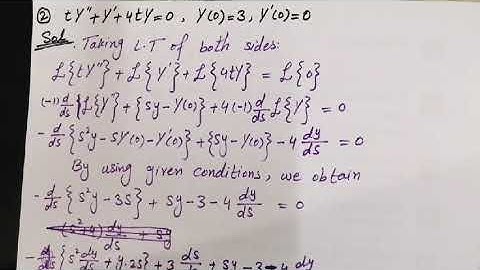 ② tY"+Y'+4tY=0 , Y(0)=3, Y'(0)=0
Sol. Taking L.T of both sides:
ℒ{tY"} + ℒ{Y'} + ℒ{4tY} = ℒ{0}
(-1) d/ds {ℒ{Y"} + {sy-Y(0)} + 4(-1) d/ds ℒ{Y} = 0
- d/ds {s²y-sY'(0)-Y'(0)} + {sy-Y(0)} - 4 dy/ds = 0
By using given conditions, we obtain
- d/ds {s²y-3s} + sy-3-4 dy/ds = 0
(s²+4) dy/ds + sy
- d/ds {s² dy/ds + y.2s} + 3 ds/ + sy-3-4 dy